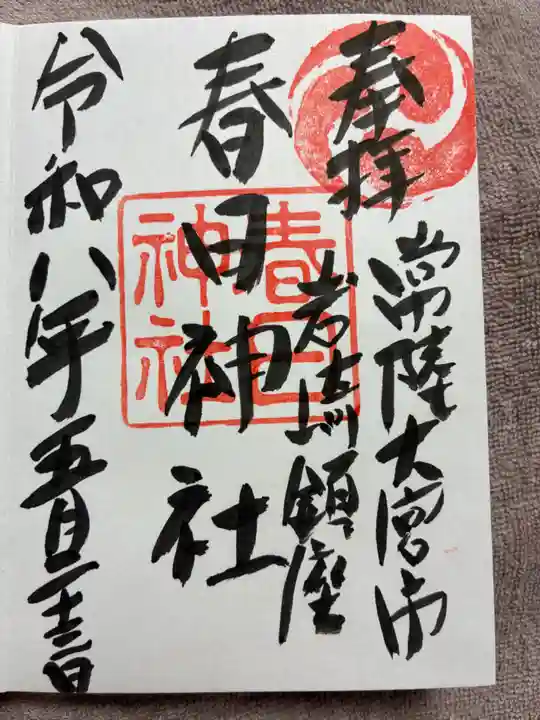 奉拝
常陸大宮市
鎮座
春日神社
春日神社
令和八年五月二十三日